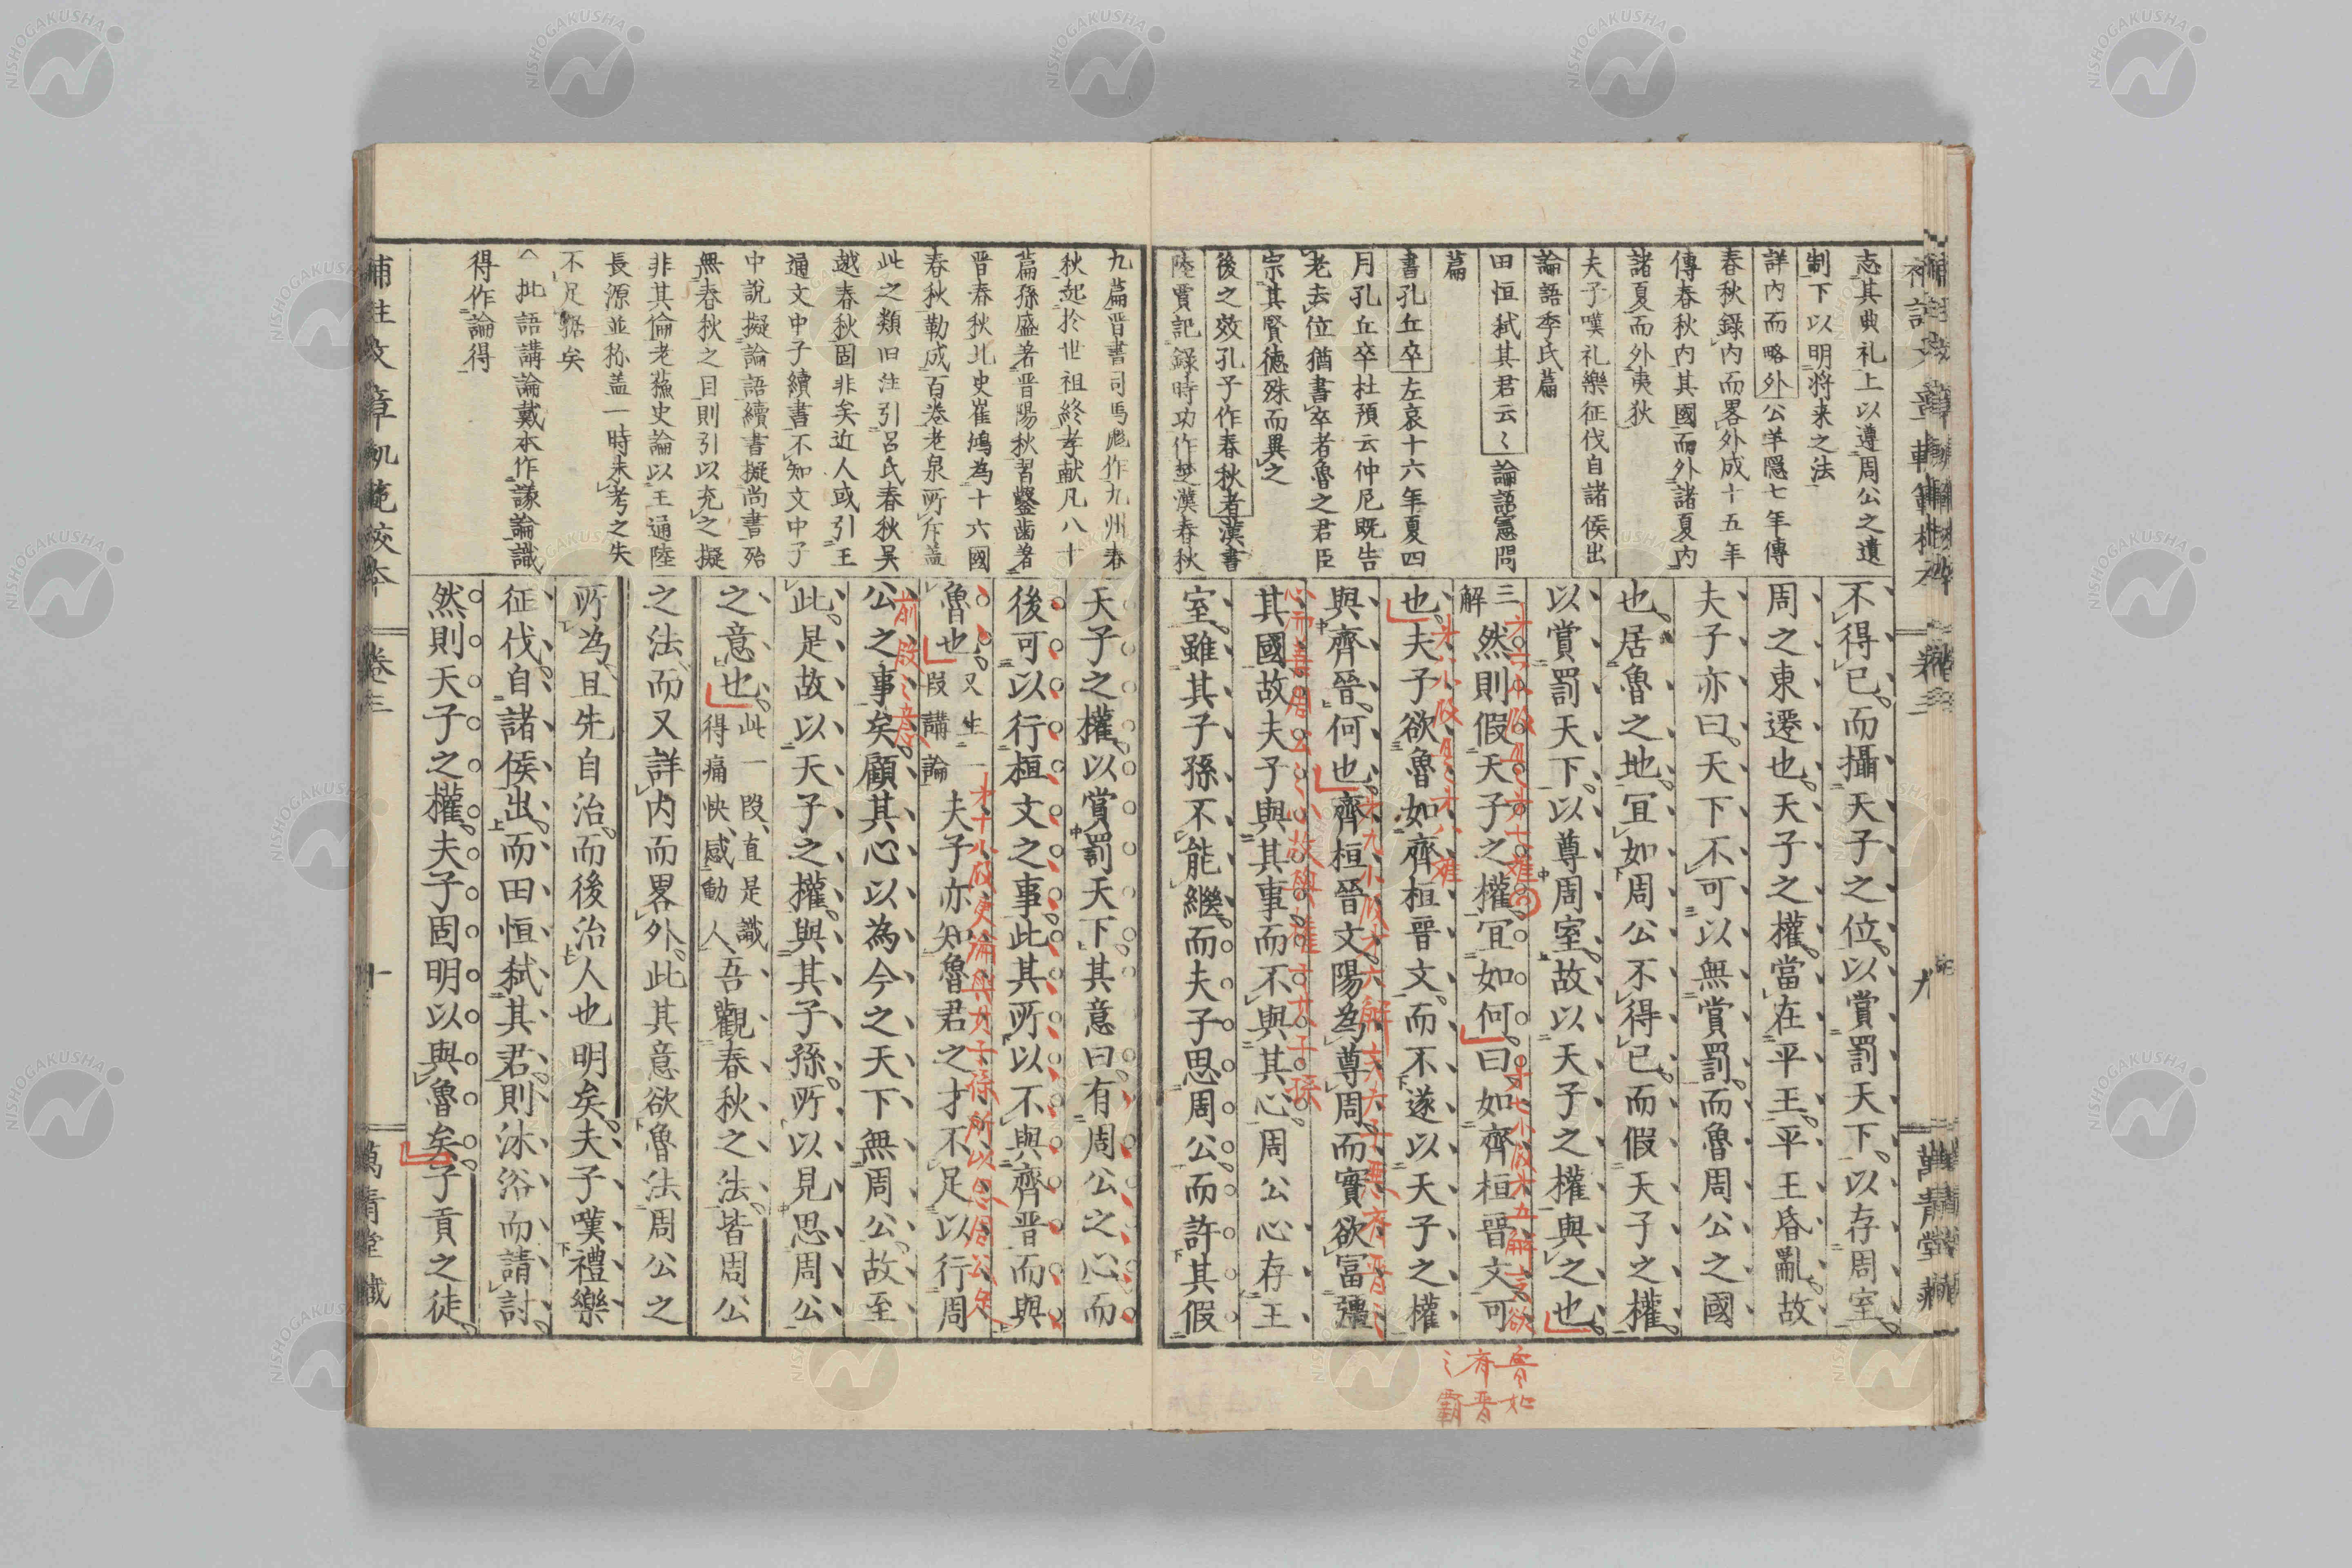 志其典礼上以遵周公之遺
制下以明将来之法
詳内而略外公羊隠七年傳
春秋録内而畧外成十五年
傳春秋内其國而外諸夏内
諸夏而外夷狄
夫子嘆礼樂征伐自諸侯出
論語季氏篇
田恒弑其君云〻論語憲問
篇
書孔丘卒左哀十六年夏四
月孔丘卒杜預云仲尼既告
老去位猶書卒者魯之君臣
宗其賢德殊而異之
後之效孔子作春秋者漢書
陸賈記録時功作楚漢春秋
不得已而攝天子之位以賞罰天下以存周室
周之東遷也天子之權當在平王平王昏亂故
夫子亦曰天下不可以無賞罰而魯周公之國
也居魯之地冝如周公不得已而假天子之權
以賞罰天下以尊周室故以天子之權與之也
三解然則假天子之權冝如何曰如齊桓晉文可
也夫子欲魯如齊桓晉文而不遂以天子之權
與齊晉何也齊桓晉文陽為尊周而實欲富彊
其國故夫子與其事而不與其心周公心存王
室雖其子孫不能繼而夫子思周公而許其假
九
萬青堂藏
九篇晋書司馬彪作九州春
秋起於世祖終孝献凡八十
篇孫盛著晋陽秋習鑿齒著
晋春秋北史崔鴻為十六國
春秋勒成百巻老泉所斥盖
此之類旧注引呂氏春秋吴
越春秋固非矣近人或引王
通文中子續書不知文中子
中說擬論語續書擬尚書殆
無春秋之目則引以充之擬
非其倫老蘓史論以王通陸
長源並称盖一時未考之失
不足據矣
批語講論戴本作議論識
得作論得
天子之權以賞罰天下其意曰有周公之心而
後可以行桓文之事此其所以不與齊晋而與
魯也又生一段講論夫子亦知魯君之才不足以行周
公之事矣顧其心以為今之天下無周公故至
此是故以天子之權與其子孫所以見思周公
之意也此一段直是識得痛快感動人吾觀春秋之法皆周公
之法而又詳内而畧外此其意欲魯法周公之
所為且先自治而後治人也明矣夫子嘆禮樂
征伐自諸侯出而田恒弑其君則沐浴而請討
然則天子之權夫子固明以與魯矣子貢之徒
補註文章軌範校本
卷三
十
萬青堂藏
前段之意
魯如
齊晋
之霸